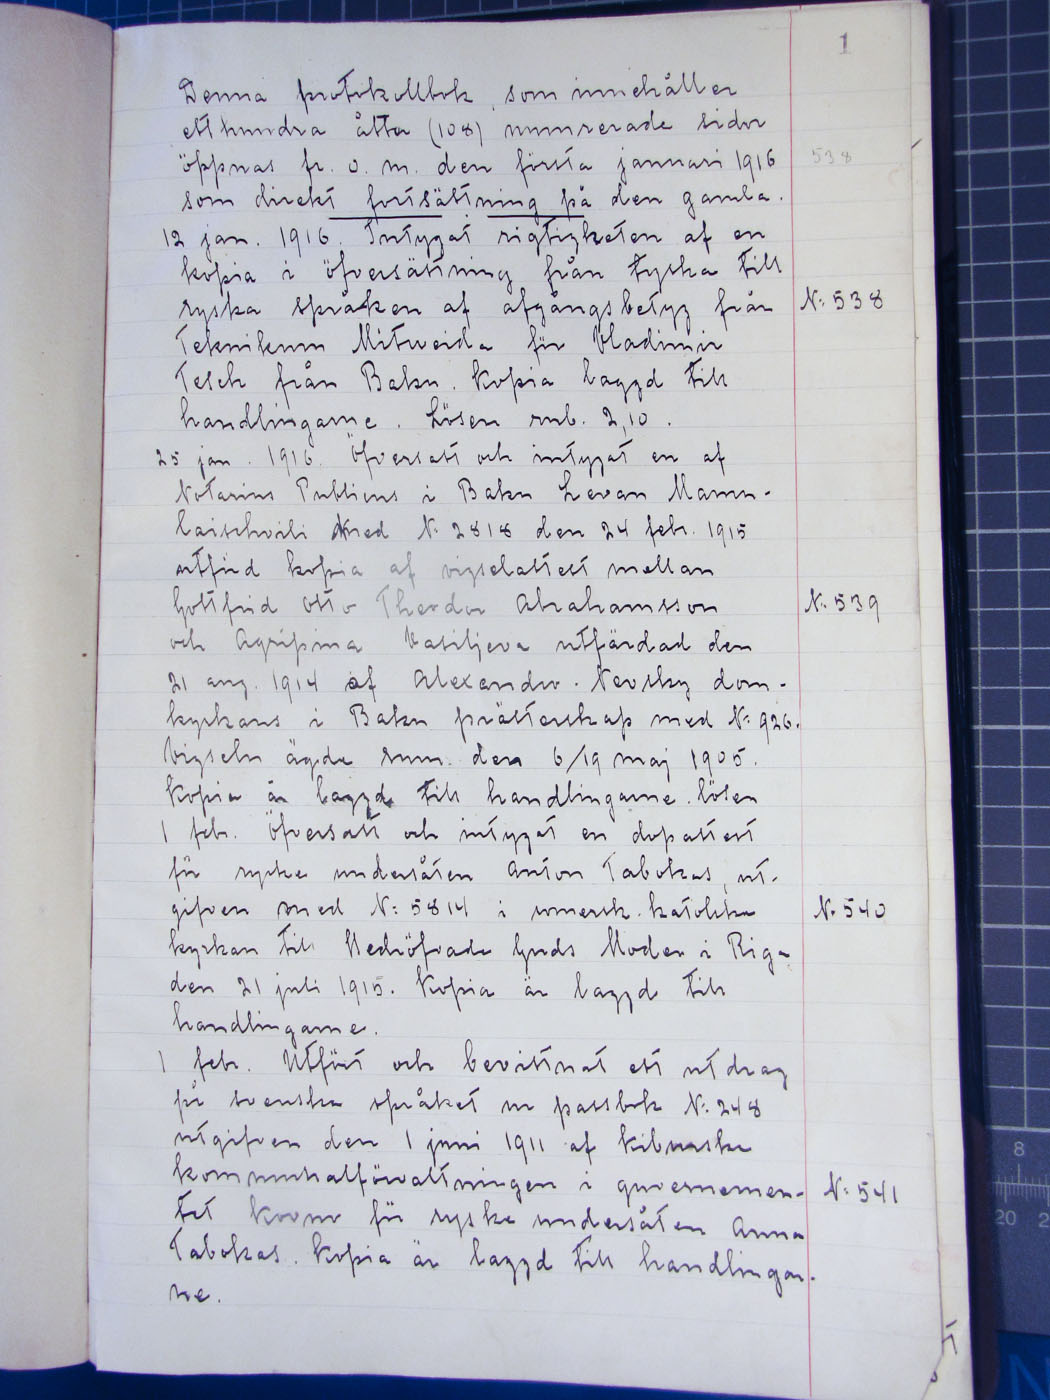 1
Denna protokollbok, som innehåller
etthundra åtta (108) numrerade sidor
öppnas fr. o. m. den första januari 1916
538
som direkt fortsättning på den gamla.
12 jan. 1916. Intygat rigtigheten af en
kopia i öfversättning från tyska till
ryska språken af afgångsbetyg från
N: 538
Teknikum Mitweida för Vladimir
Tesch från Baku. Kopia laggd till
handlingarne. Lösen rub. 2,10.
25 jan. 1916. Öfversatt och intygat en af
Notarius Publicus i Baku Levan Mamu-
laischvili med N: 2818 den 24 febr. 1915
utfärd kopia af vigselattest mellan
Gottfrid Otto Theodor Abrahamsson
N: 539
och Agripina Vasiljeva utfärdad den
21 aug. 1914 af Alexandro-Nevsky dom-
kyrkans i Baku prästerskap med N: 926.
Vigseln ägde rum den 6/19 maj 1905.
Kopia är laggd till handlingarne. lösen
1 febr. Öfversatt och intygat en dopattest
för ryske undersåten Anton Tabokas, ut-
gifven med N: 5814 i romersk. katolska
N: 540
kyrkan till Bedröfvade Guds Moder i Riga
den 21 juli 1915. Kopia är laggd till
handlingarne.
1 febr. Utfört och bevittnat ett utdrag
på svenska språket ur passbok N: 248
utgifven den 1 juni 1911 af
kommunalförvaltningen i guvernemen-
N: 541
tet Kovno för ryske undersåten Anna
Tabokas. Kopia är laggd till handlingar-
ne.
8
20
2